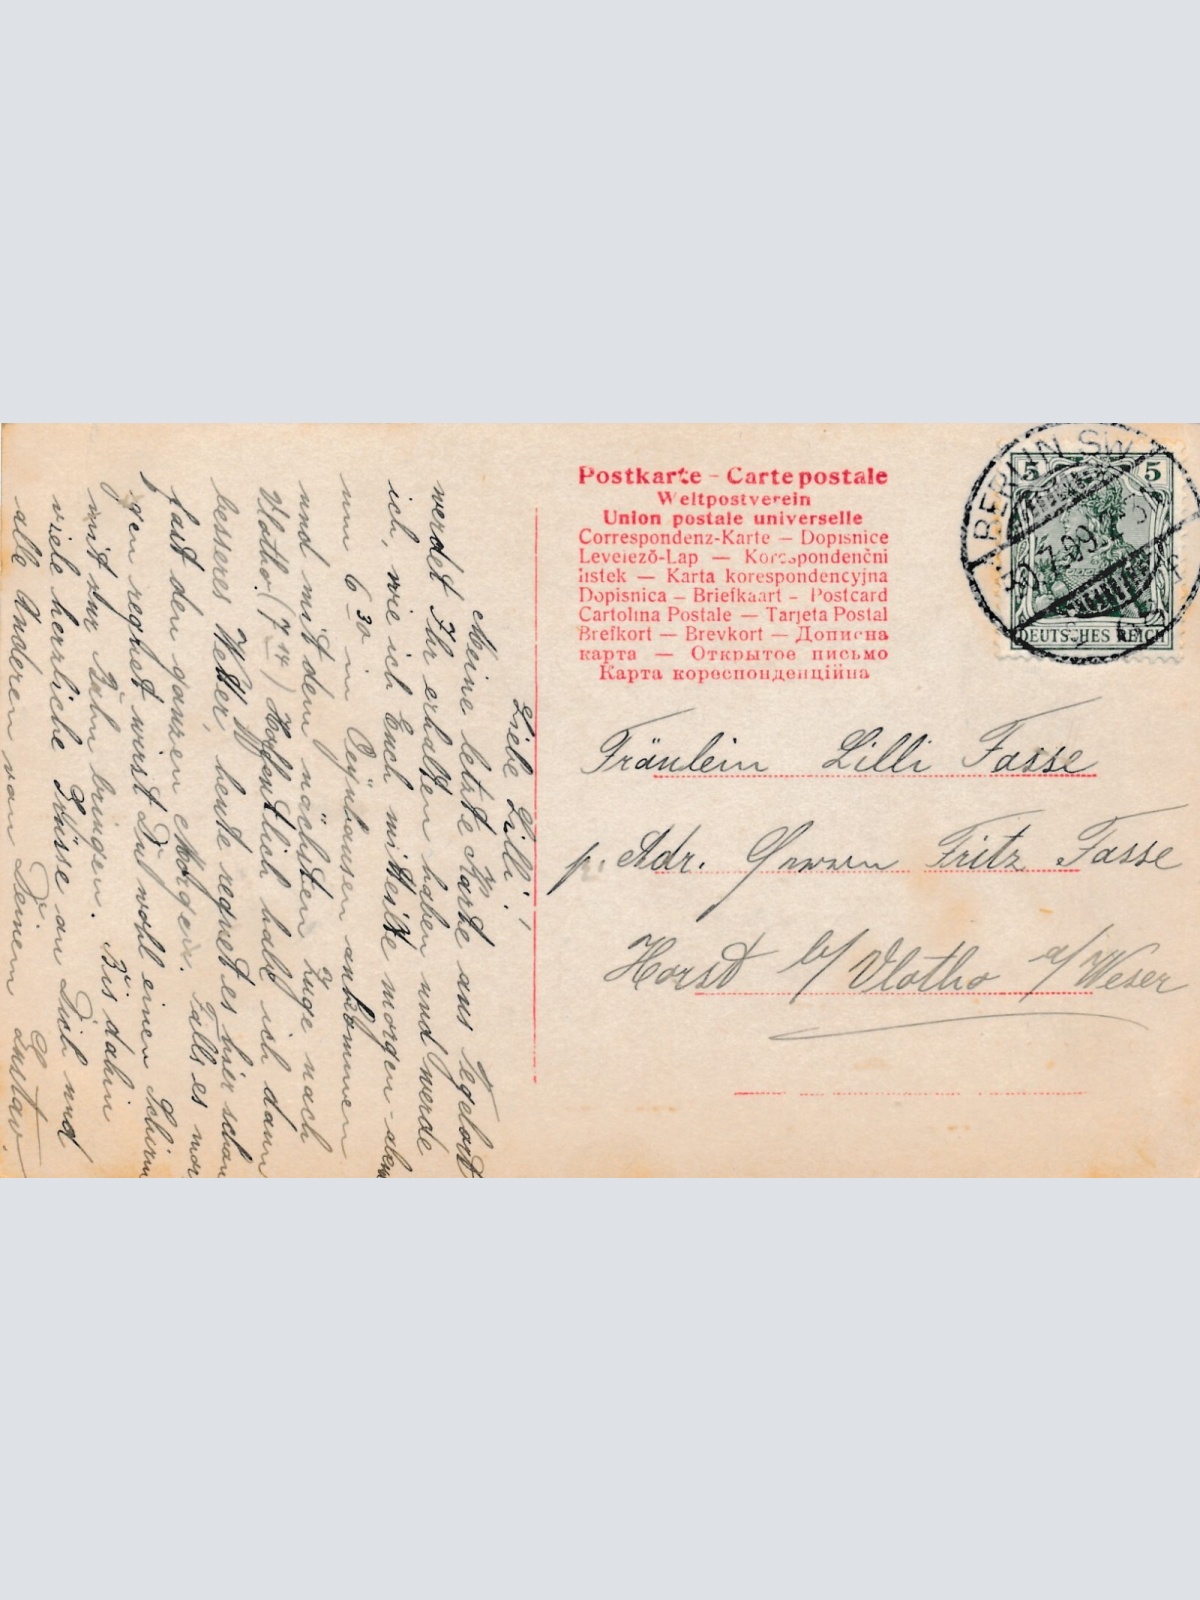 Postkarte – Carte postale
Weltpostverein
Union postale universelle
Correspondenz-Karte – Dopisnice
Levelező-Lap — Korespondenční
lístek — Karta korespondencyjna
Dopisnica – Briefkaart – Postcard
Cartolina Postale – Tarjeta Postal
Brefkort – Brevkort – Дописна
карта — Открытое письмо
Карта кореспонденційна
BERLIN SW
5 5
7.09
DEUTSCHES REICH
Fräulein Lilli Fasse
p. Adr. Fritz Fasse
Horst b/ Vlotho a/ Weser
Liebe Lilli!
Meine letzte Karte aus Tegelort
werdet Ihr erhalten haben und werde
ich, wie ich Euch mitteilte morgen
um 6 30 in Oeynhausen ankommen
und mit dem nächsten Zuge nach
Vlotho. (7 14) Hoffentlich habt ich dann
besseres Wetter, heute regnet es hier schon
fast den ganzen Morgen. Falls es mor-
gen regnet wirst Du wohl einen Schirm
mit zur Bahn bringen. Bis dahin
viele herzliche Grüsse an Dich und
alle Anderen von Deinem Gustav.